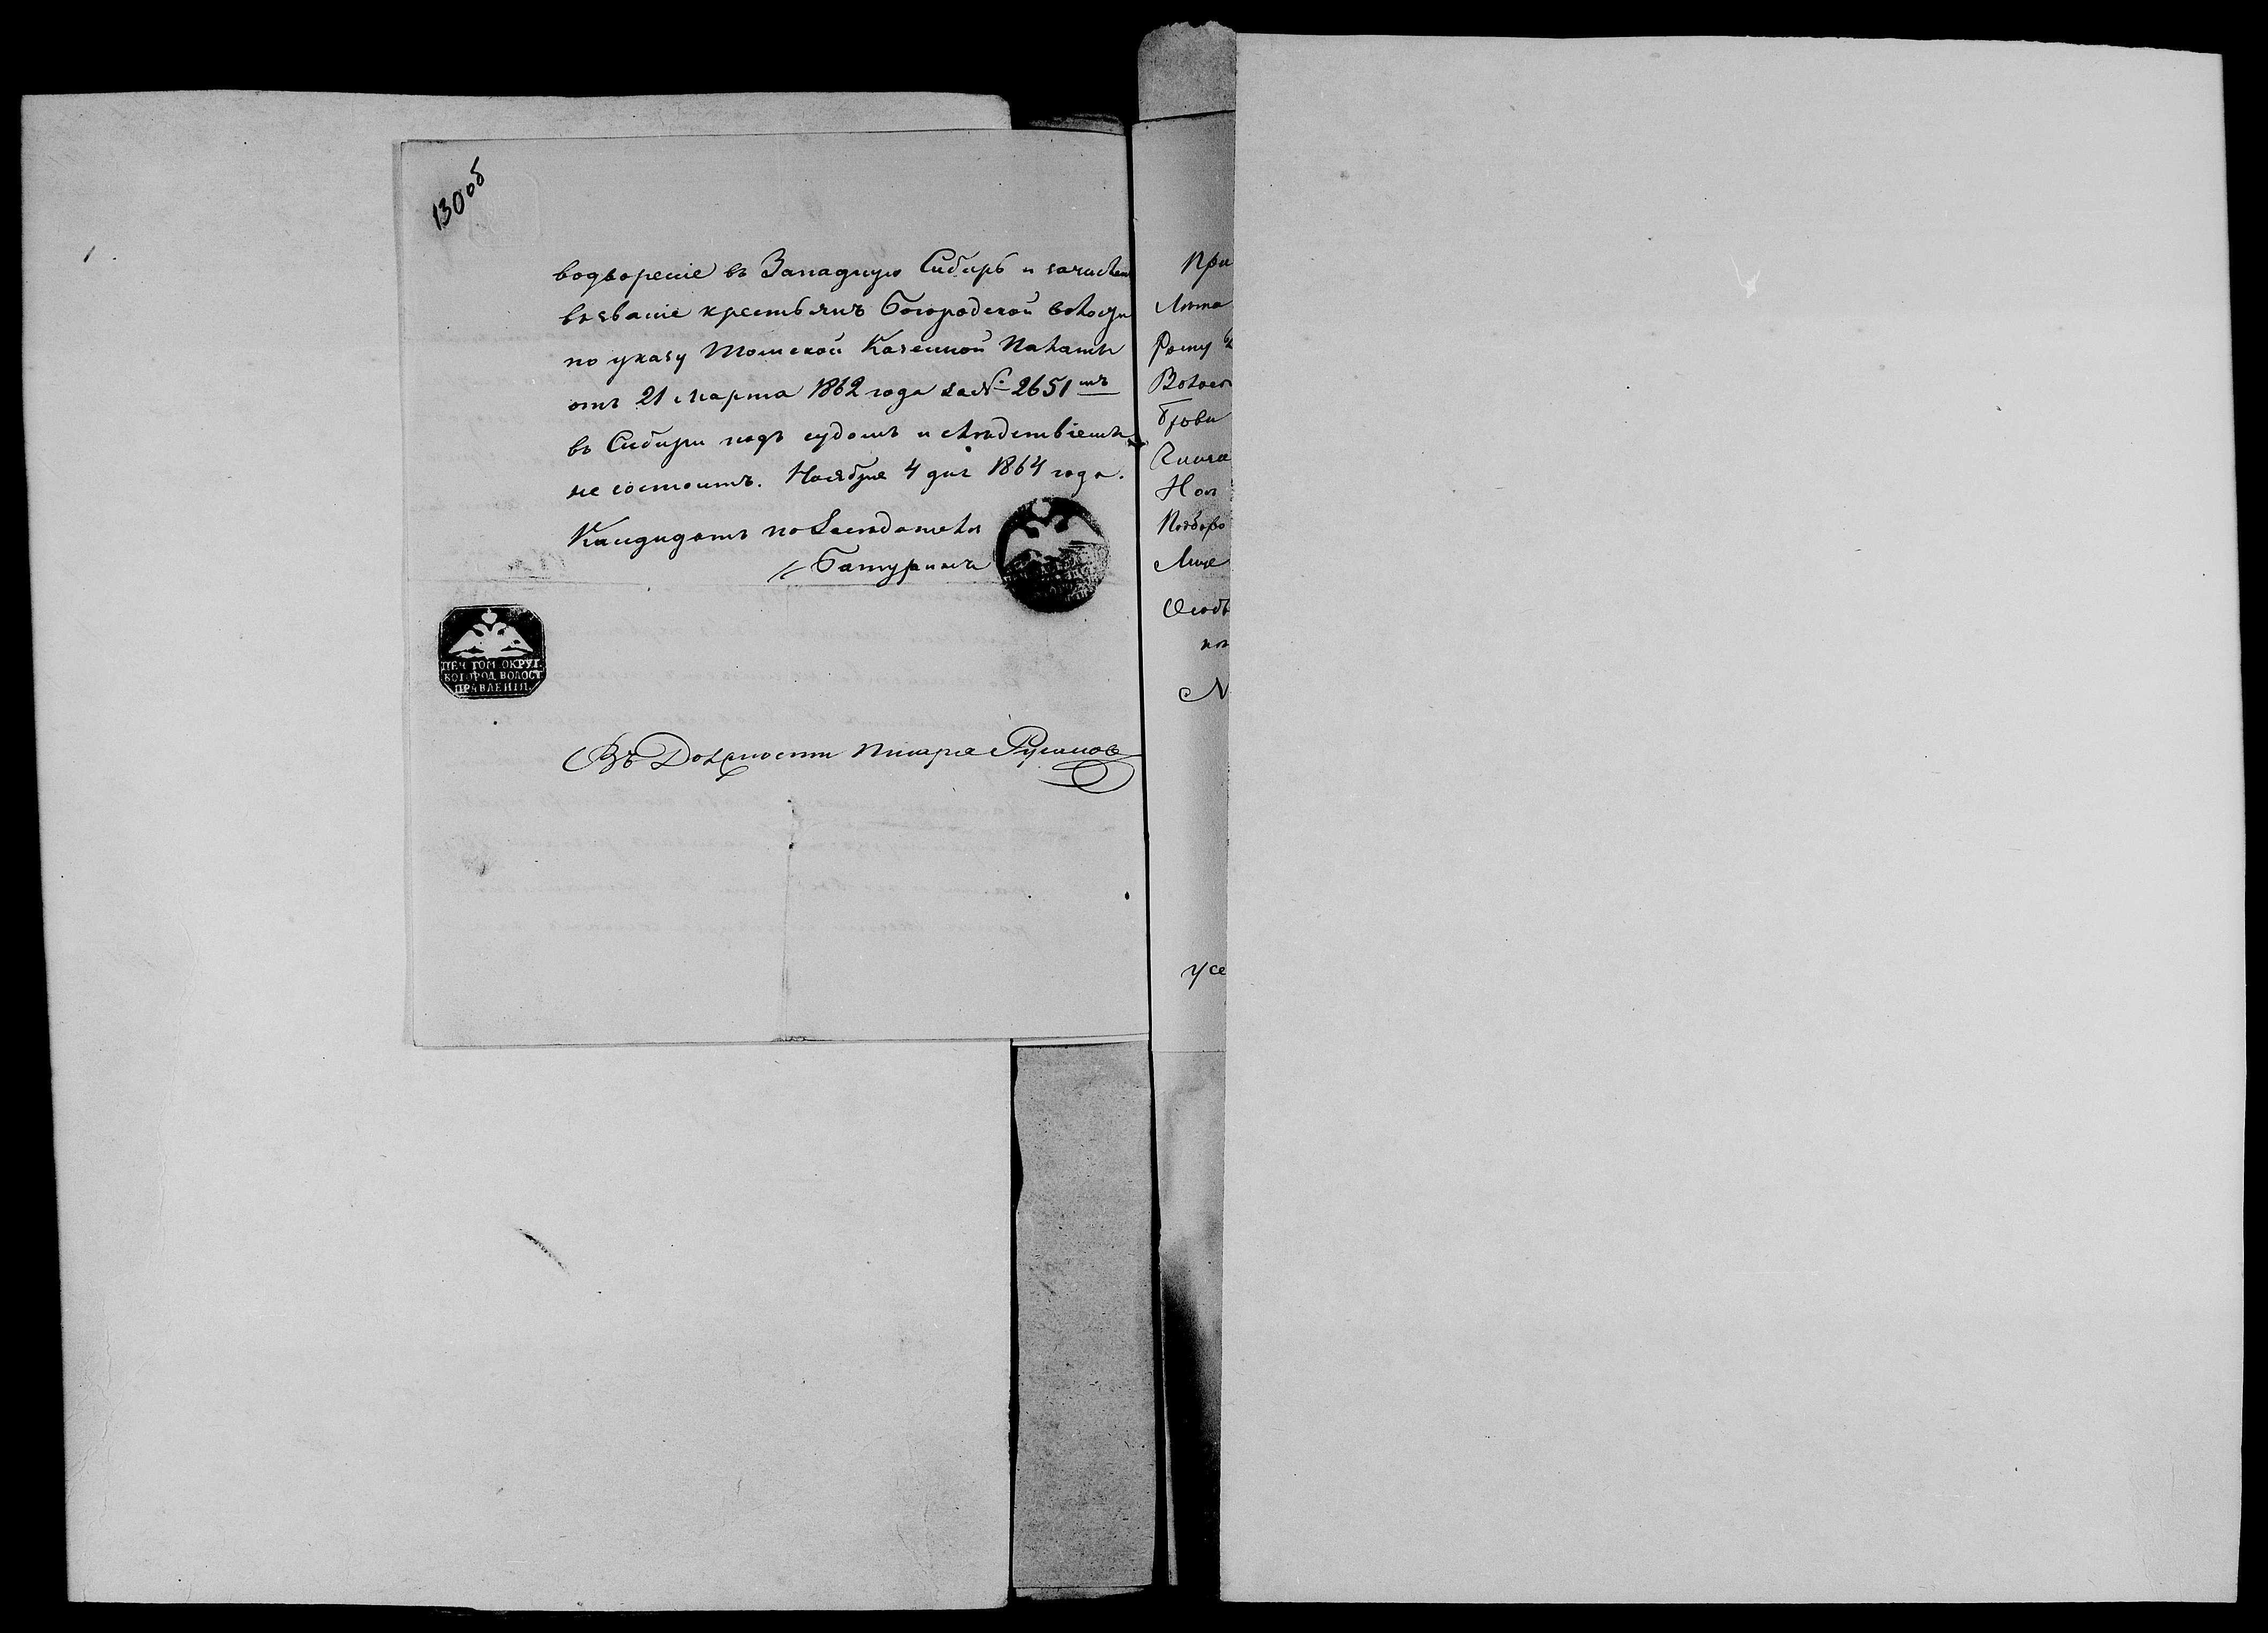 130 об
водворение въ Западную Сибирь и зачислен
въ звание крестьянъ Богородской волости
по указу Томской Казенной Палаты
отъ 21 Марта 1862 года за № 2651 мъ
въ Сибири подъ судомъ и следствиемъ
не состоитъ. Ноября 4 дня 1864 года.
Кандидатъ по Заседателя
Батуринъ
ПЕЧ ТОМ ОКРУГ.
БОГОРОД ВОЛОСТ
ПРАВЛЕНІЯ.
Въ Должности Писаря Русанов
При
Лѣта
Росту
Волос
Брови
Глаза
Нос
Подборо
Лице
Особ